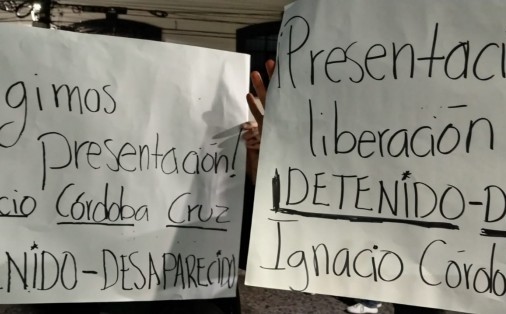 gimos
presentación!
cio Córdoba Cruz
NIDO-DESAPARECIDO
¡Presentaci
liberación
¡DETENIDO-D
Ignacio Córdo